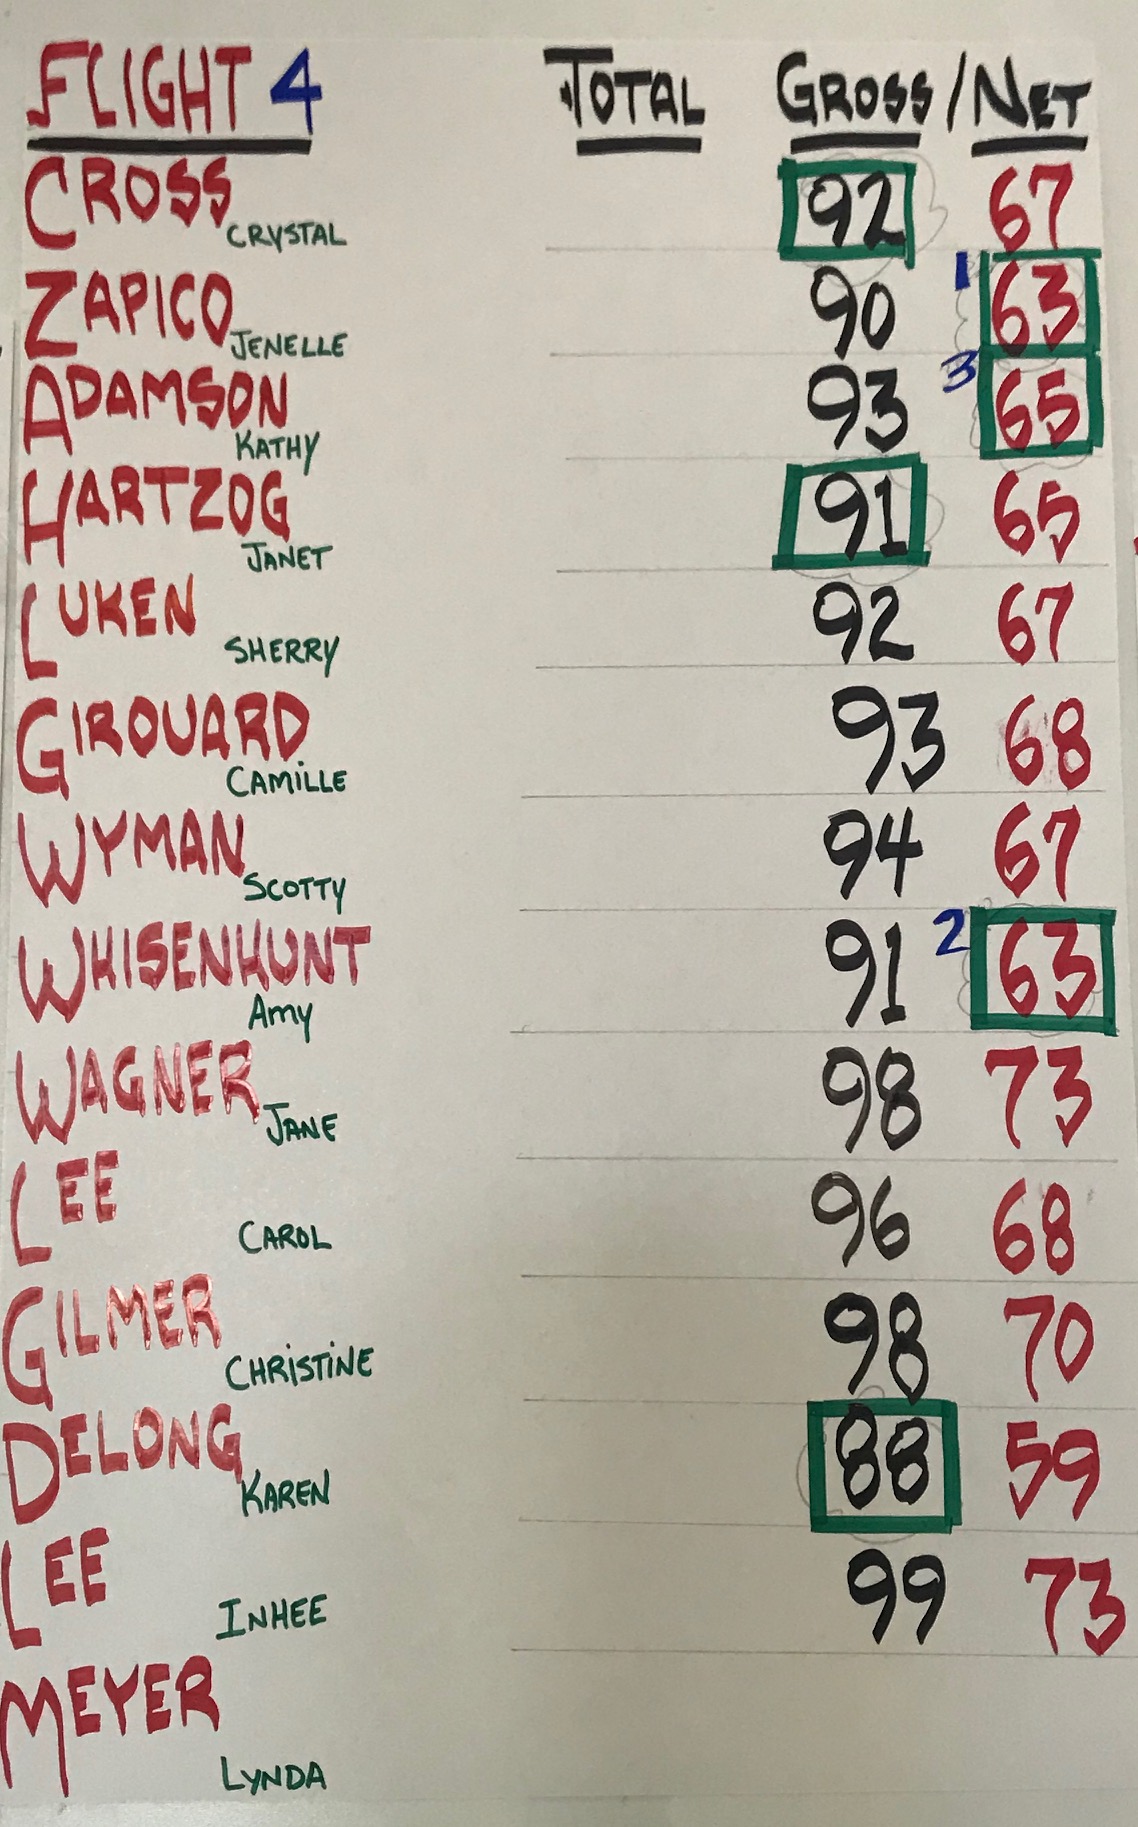 FLIGHT 4 TOTAL GROSS / NET
CROSS CRYSTAL 92 67
ZAPICO JENELLE 90 1 63
ADAMSON KATHY 93 3 65
HARTZOG JANET 91 65
LUKEN SHERRY 92 67
GIROUARD CAMILLE 93 68
WYMAN SCOTTY 94 67
WHISENHUNT Amy 91 2 63
WAGNER JANE 98 73
LEE CAROL 96 68
GILMER CHRISTINE 98 70
DELONG KAREN 88 59
LEE INHEE 99 73
MEYER LYNDA